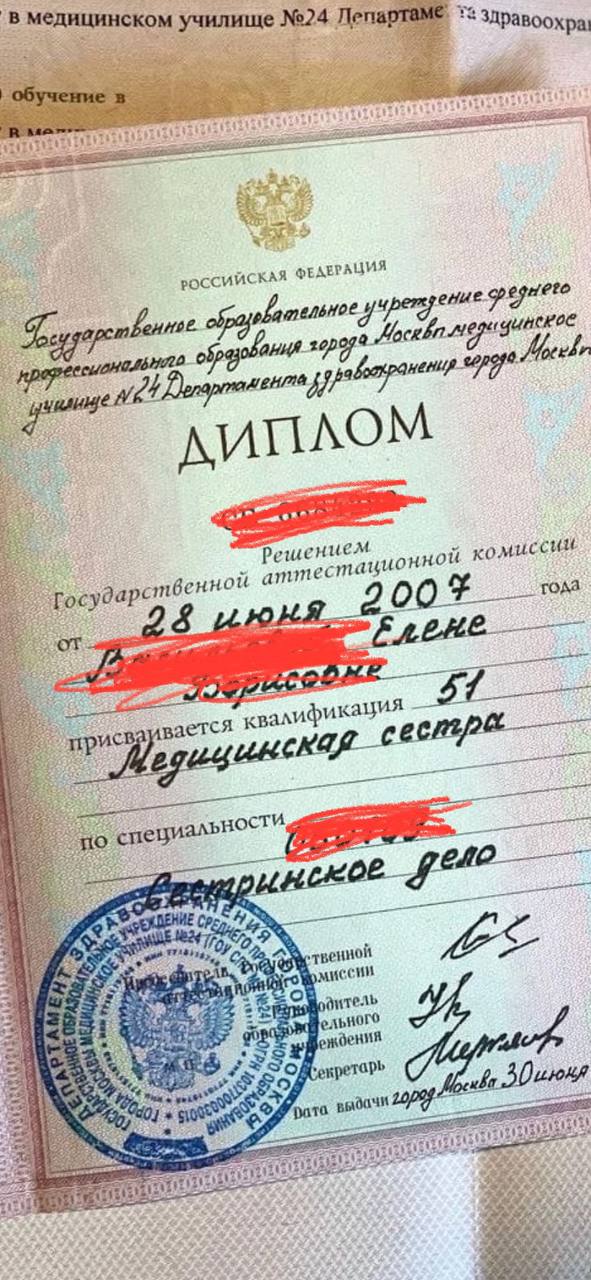 в медицинском училище №24 Департаме та здравоохран
обучение в
в мед
РОССИЙСКАЯ ФЕДЕРАЦИЯ
Государственное образовательное учреждение среднего
профессионального образования города Москвы медицинское
училище №24 Департамента здравоохранения города Москвы
ДИПЛОМ
Решением
Государственной аттестационной комиссии
от 28 июня 2007 года
Елене
Борисовне
присваивается квалификация 51
Медицинская сестра
по специальности
Сестринское дело
Председатель Государственной
аттестационной комиссии
Руководитель
образовательного
учреждения
Секретарь
Дата выдачи город Москва 30 июня
ДЕПАРТАМЕНТ ЗДРАВООХРАНЕНИЯ ГОРОДА МОСКВЫ
ГОСУДАРСТВЕННОЕ ОБРАЗОВАТЕЛЬНОЕ УЧРЕЖДЕНИЕ СРЕДНЕГО ПРОФЕССИОНАЛЬНОГО ОБРАЗОВАНИЯ
ГОРОДА МОСКВЫ МЕДИЦИНСКОЕ УЧИЛИЩЕ №24
М.П.